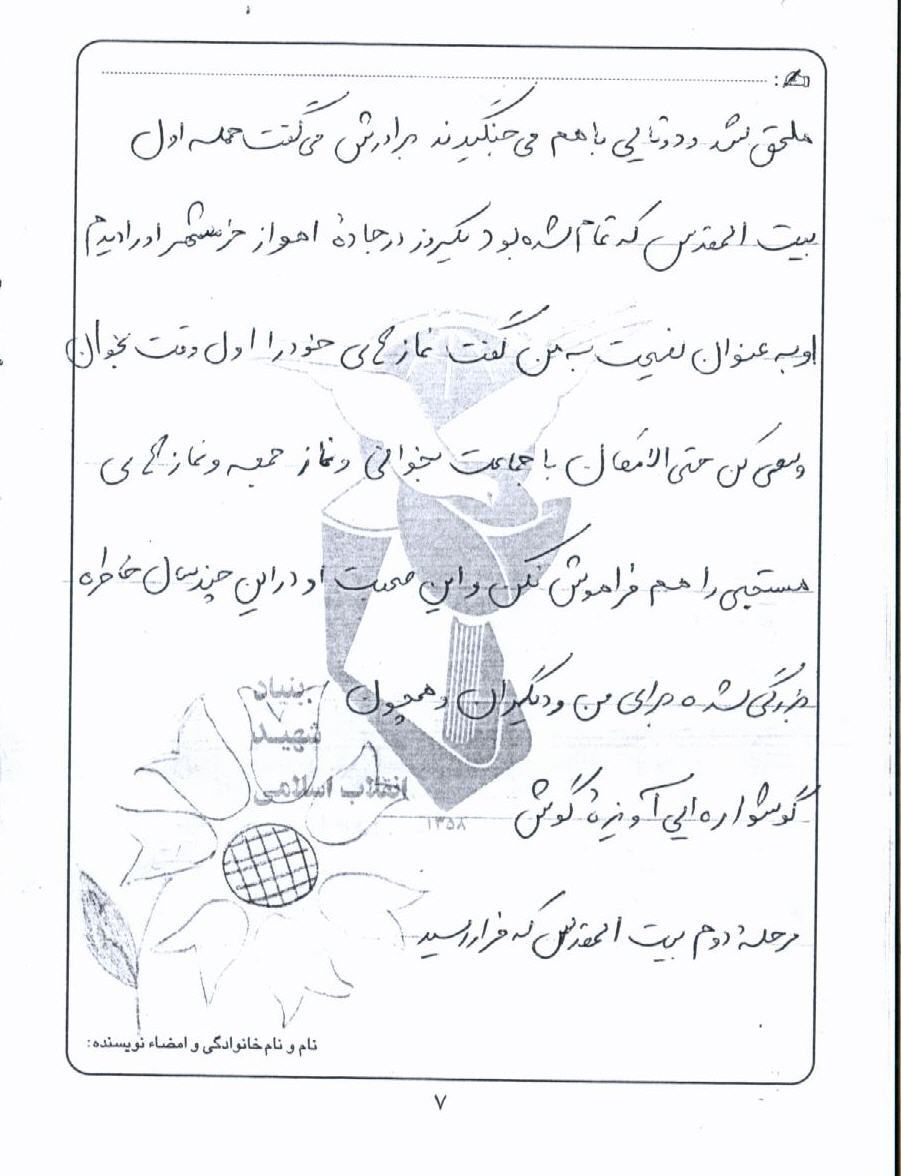 ملحق شد و دوتایی باهم می‌جنگیدند برادرش می‌گفت حمله اول
بیت المقدس که تمام شده بود یکروز در جادهٔ اهواز خرمشهر او را دیدم
او به عنوان نصیحت به من گفت نمازهای خود را اول وقت بخوان
وسعی کن حتی الامکان با جماعت بخوانی و نماز جمعه و نمازهای
مستحبی را هم فراموش نکن و این صحبت او در این چند سال خاطره
بزرگی شده برای من و دیگران و همچون
گوشواره ایی آویزهٔ گوش
مرحلهٔ دوم بیت المقدس که فرا رسید
بنیاد
شهید
انقلاب اسلامی
۱۳۵۸
نام و نام خانوادگی و امضاء نویسنده:
۷